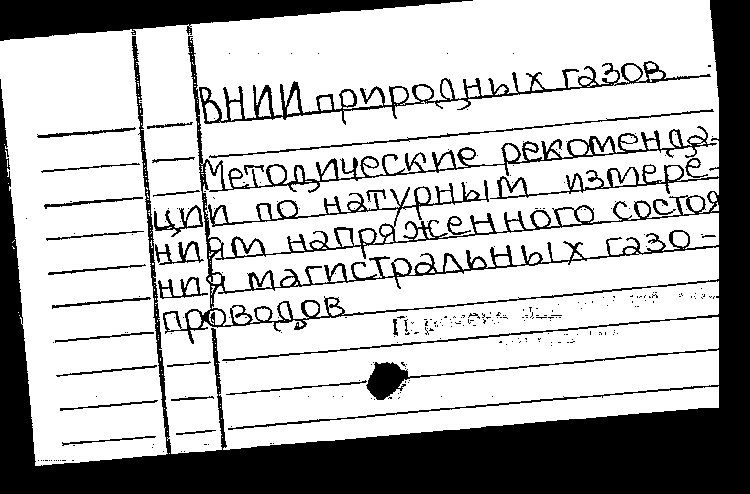 ВНИИ природных газов
Методические рекоменда-
ции по натурным измере-
ниям напряженного состоя
ния магистральных газо-
проводов